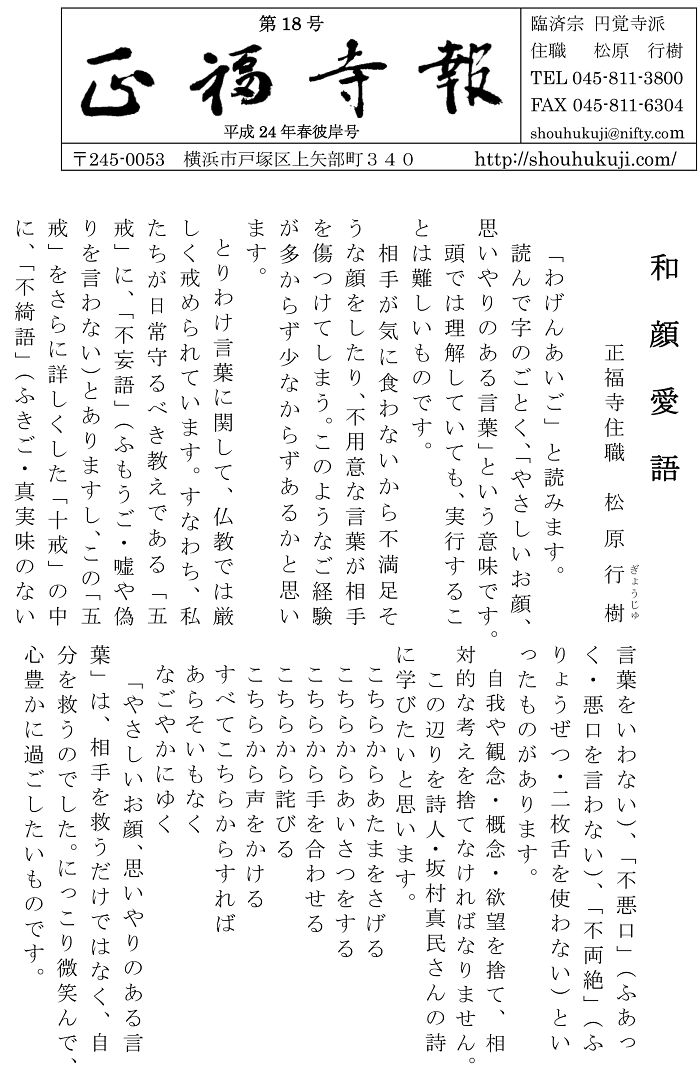 第18号
正福寺報
平成24年春彼岸号
臨済宗 円覚寺派
住職 松原 行樹
TEL 045-811-3800
FAX 045-811-6304
shouhukuji@nifty.com
〒245-0053 横浜市戸塚区上矢部町３４０ http://shouhukuji.com/
和顔愛語
正福寺住職 松原行樹
ぎょうじゅ
「わげんあいご」と読みます。
読んで字のごとく、「やさしいお顔、
思いやりのある言葉」という意味です。
頭では理解していても、実行するこ
とは難しいものです。
相手が気に食わないから不満足そ
うな顔をしたり、不用意な言葉が相手
を傷つけてしまう。このようなご経験
が多からず少なからずあるかと思い
ます。
とりわけ言葉に関して、仏教では厳
しく戒められています。すなわち、私
たちが日常守るべき教えである「五
戒」に、「不妄語」（ふもうご・嘘や偽
りを言わない）とありますし、この「五
戒」をさらに詳しくした「十戒」の中
に、「不綺語」（ふきご・真実味のない
言葉をいわない）、「不悪口」（ふあっ
く・悪口を言わない）、「不両絶」（ふ
りょうぜつ・二枚舌を使わない）とい
ったものがあります。
自我や観念・概念・欲望を捨て、相
対的な考えを捨てなければなりません。
この辺りを詩人・坂村真民さんの詩
に学びたいと思います。
こちらからあたまをさげる
こちらからあいさつをする
こちらから手を合わせる
こちらから詫びる
こちらから声をかける
すべてこちらからすれば
あらそいもなく
なごやかにゆく
「やさしいお顔、思いやりのある言
葉」は、相手を救うだけではなく、自
分を救うのでした。にっこり微笑んで、
心豊かに過ごしたいものです。